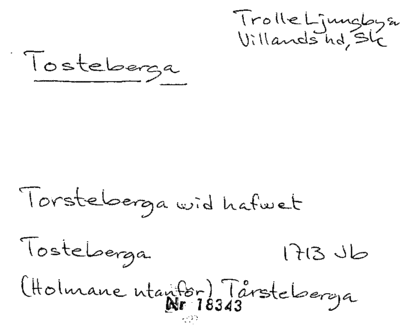 Trolle Ljungby sn
Villands hd, Sk
Tosteberga
Torsteberga wid hafwet
Tosteberga 1713 Jb
(Holmane utanför) Tårsteberga
Nr 18343